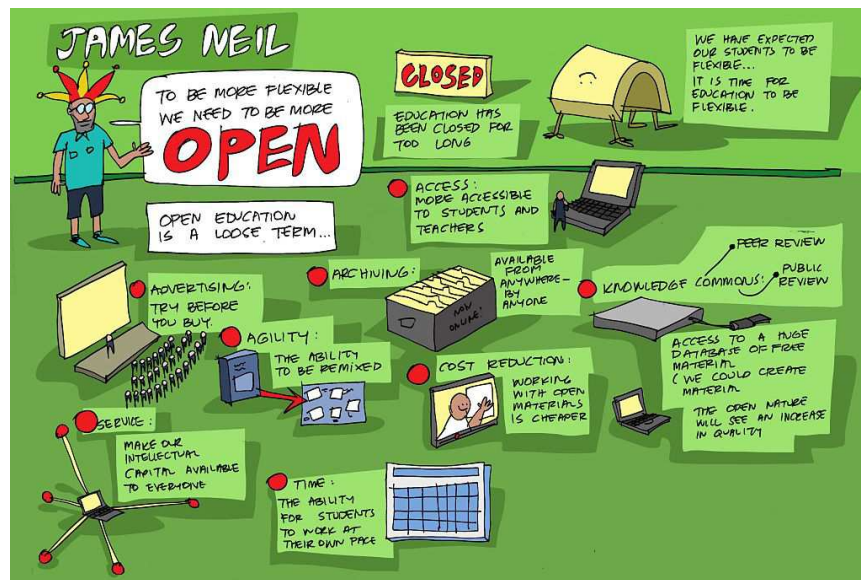 JAMES NEIL
TO BE MORE FLEXIBLE
WE NEED TO BE MORE
OPEN
CLOSED
EDUCATION HAS
BEEN CLOSED FOR
TOO LONG
WE HAVE EXPECTED
OUR STUDENTS TO BE
FLEXIBLE...
IT IS TIME FOR
EDUCATION TO BE
FLEXIBLE.
OPEN EDUCATION
IS A LOOSE TERM...
ACCESS:
MORE ACCESSIBLE
TO STUDENTS AND
TEACHERS
ADVERTISING:
TRY BEFORE
YOU BUY.
AGILITY:
THE ABILITY
TO BE REMIXED
ARCHIVING:
NOW
ONLINE!
AVAILABLE
FROM
ANYWHERE-
BY
ANYONE
KNOWLEDGE COMMONS:
PEER REVIEW
PUBLIC
REVIEW
ACCESS TO A HUGE
DATABASE OF FREE
MATERIAL
(WE COULD CREATE
MATERIAL
THE OPEN NATURE
WILL SEE AN INCREASE
IN QUALITY
COST REDUCTION:
WORKING
WITH OPEN
MATERIALS
IS CHEAPER
SERVICE:
MAKE OUR
INTELLECTUAL
CAPITAL AVAILABLE
TO EVERYONE
TIME:
THE ABILITY
FOR STUDENTS
TO WORK AT
THEIR OWN PACE